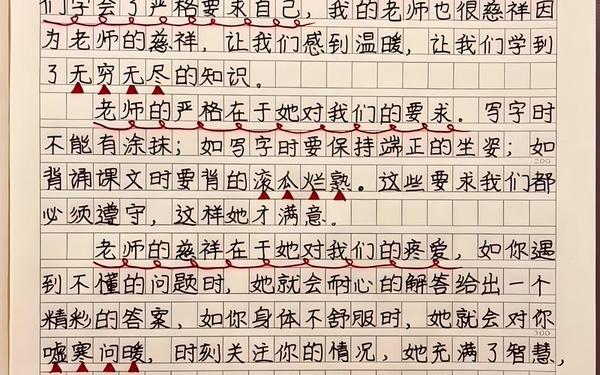 们学会了严格要求自己，我的老师也很慈祥因
为老师的慈祥，让我们感到温暖，让我们学到
了无穷无尽的知识。
老师的严格在于她对我们的要求。写字时
不能有涂抹；如写字时要保持端正的坐姿；如
200
背诵课文时要背的滚瓜烂熟。这些要求我们都
必须遵守，这样她才满意。
老师的慈祥在于她对我们的疼爱，如你遇
到不懂的问题时，她就会耐心的解答给出一个
精彩的答案，如你身体不舒服时，她就会对你
300
嘘寒问暖，时刻关注你的情况，她充满了智慧，